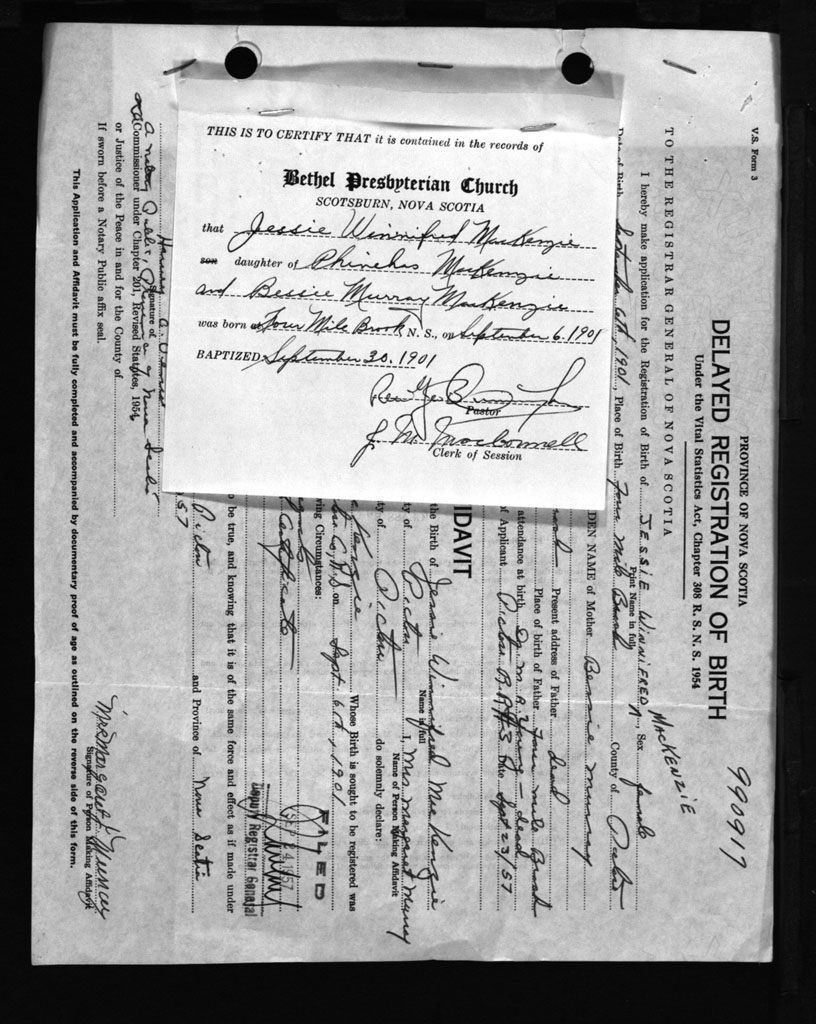 THIS IS TO CERTIFY THAT it is contained in the records of
Bethel Presbyterian Church
SCOTSBURN, NOVA SCOTIA
that Jessie Winnifred MacKenzie
son daughter of Phinehas MacKenzie
and Bessie Murray MacKenzie
was born at Four Mile Brook, N. S., on September 6. 1901
BAPTIZED September 30. 1901
Rev
Pastor
J. M. MacConnell
Clerk of Session
V.S. Form 3
990917
PROVINCE OF NOVA SCOTIA
DELAYED REGISTRATION OF BIRTH
Under the Vital Statistics Act, Chapter 308 R. S. N. S. 1954
TO THE REGISTRAR GENERAL OF NOVA SCOTIA
MACKENZIE
I hereby make application for the Registration of Birth of JESSIE WINNIFRED Sex female
Print Name in full
Date of Birth September 6th, 1901, Place of Birth Four Mile Brook County of Pictou
DEN NAME of Mother Bessie Murray
Present address of Father dead
Place of birth of Father Four Mile Brook
attendance at birth dead
of Applicant Pictou R.R. #3 Date Sept 23/57
IDAVIT
the Birth of Jessie Winnifred MacKenzie
Name in full
ty of Pictou I, Mrs Margaret Murray
Name of Person Making Affidavit
ty of Pictou do solemnly declare:
Whose Birth is sought to be registered was
on Sept. 6th, 1901
wing Circumstances:
Certificate
FILED
SEP 24 1957
Deputy Registrar General
be true, and knowing that it is of the same force and effect as if made under
57 Pictou and Province of Nova Scotia
Mrs Margaret Murray
Signature of Person Making Affidavit
Harvey A. Veniot
Signature of
a Notary Public, Province of Nova Scotia
(Commissioner under Chapter 201, Revised Statutes, 1954,
or Justice of the Peace in and for the County of
If sworn before a Notary Public affix seal.
This Application and Affidavit must be fully completed and accompanied by documentary proof of age as outlined on the reverse side of this form.